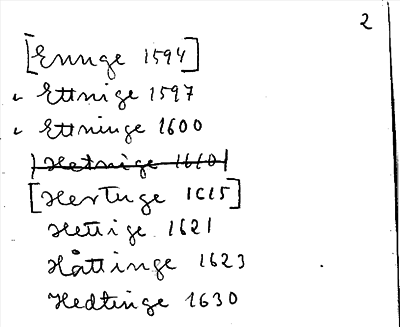 2
[Ennge 1594]
" Ettnige 1597
" Ettninge 1600
Hetnige 1610
[Hertuge 1615]
Hettige 1621
Håttinge 1623
Hedtinge 1630